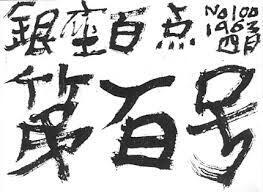 銀座百点
No100
1963
四月
第百号